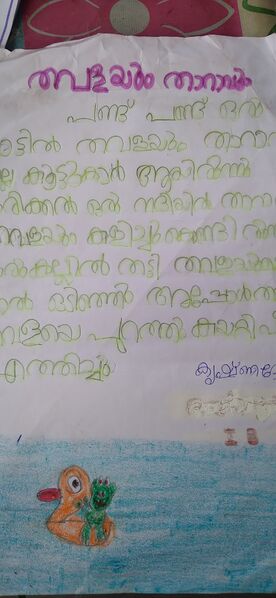 തവളയും താറാവും
പണ്ട് പണ്ട് ഒരു
ട്ടിൽ തവളയും താറാ
ല്ല കൂട്ടുകാർ ആയിരുന്നു
രിക്കൽ ഒരു നദിയിൽ താറാ
വളയും കുളിച്ചുകൊണ്ടി
കല്ലിൽ തട്ടി തവളയുടെ
ൽ ഒടിഞ്ഞു അപ്പോൾ
വളയെ പുറത്തു കയറ്റി
എത്തിച്ചു
കൃഷ്ണ
I B